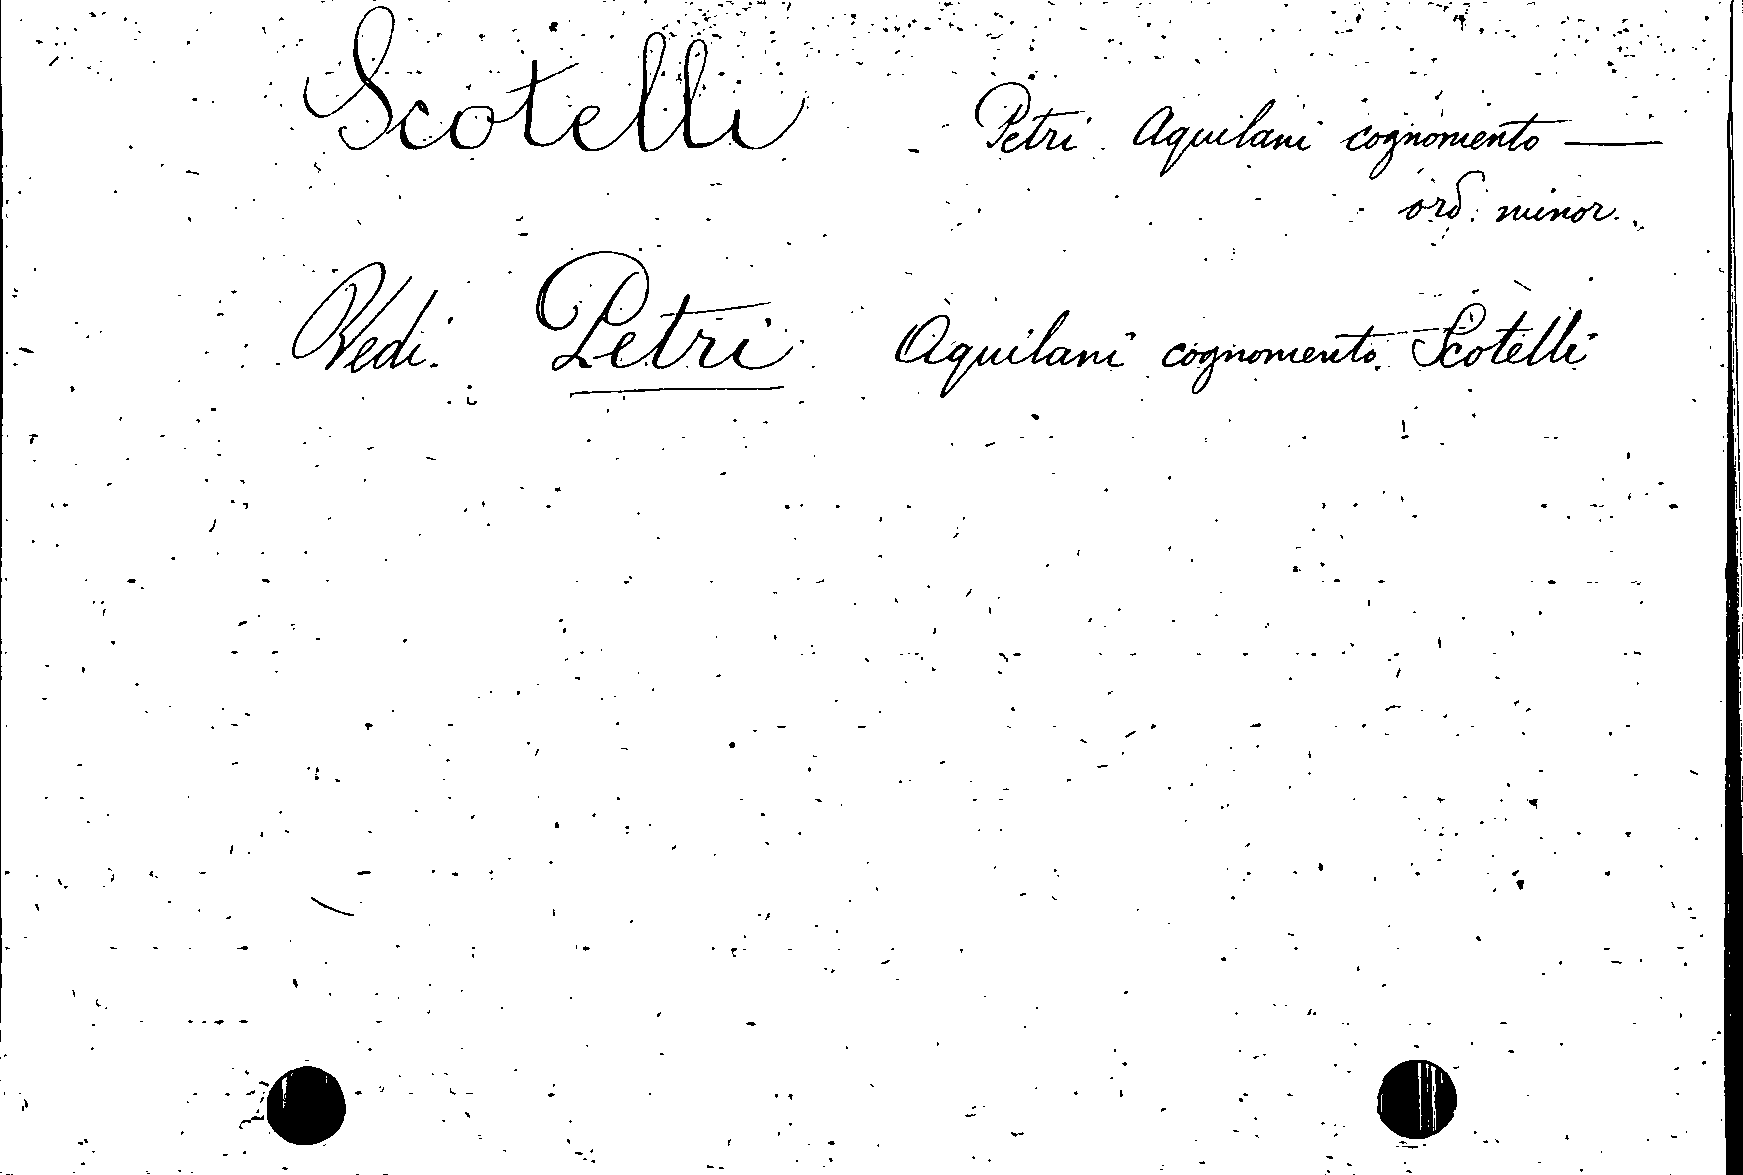 Scotelli Petri Aquilani cognomento —
ord. minor.
Vedi. Petri Aquilani cognomento Scotelli